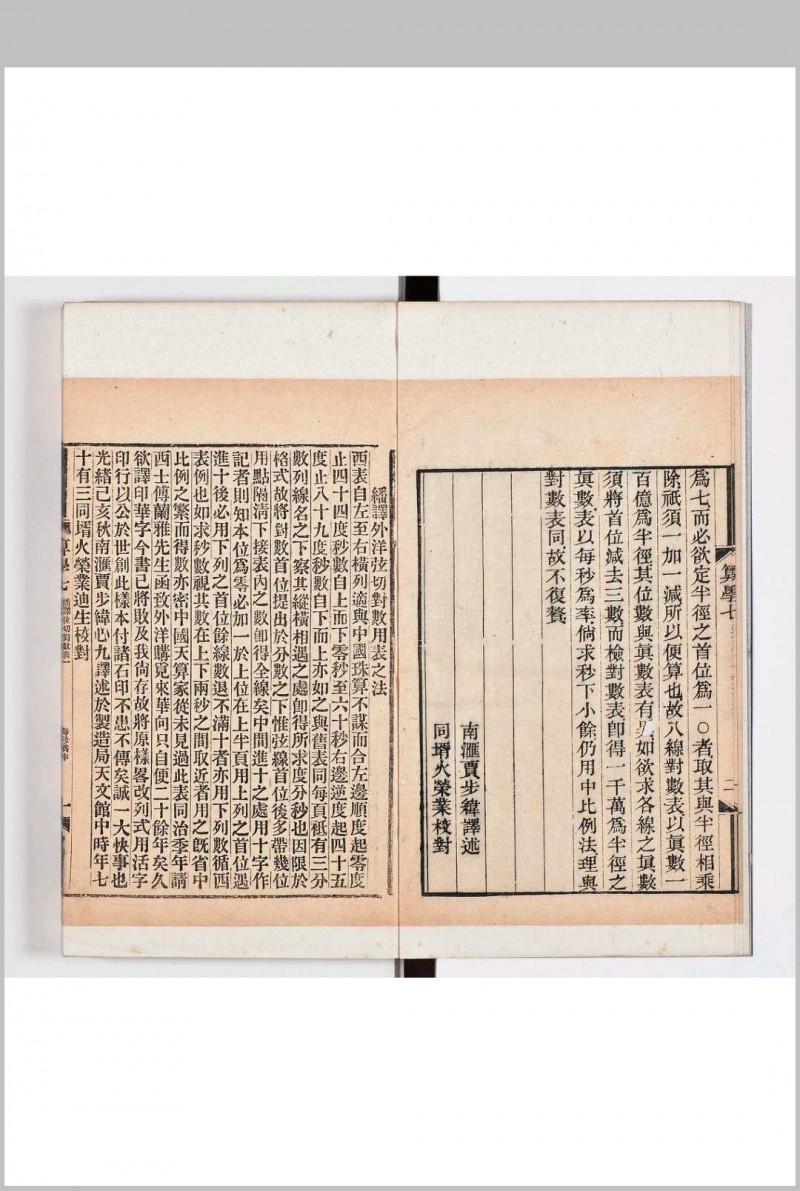 爲七而必欲定半徑之首位爲一〇者取其與半徑相乘
除祇須一加一減所以便算也故八線對數表以眞數一
百億爲半徑其位數與眞數表有異如欲求各線之眞數
須將首位減去三數而檢對數表卽得一千萬爲半徑之
眞數表以每秒爲率倘求秒下小餘仍用中比例法理與
對數表同故不復贅
南滙賈步緯譯述
同壻火榮業校對
算學七
二
繙譯外洋弦切對數用表之法
西表自左至右橫列適與中國珠算不謀而合左邊順度起零度
止四十四度秒數自上而下零秒至六十秒右邊逆度起四十五
度止八十九度秒數自下而上亦如之與舊表同每頁祇有三分
數列線名之下察其縱橫相遇之處卽得所求度分秒也因限於
格式故將對數首位提出於分數之下惟弦線首位後多帶幾位
用點隔淸下接表內之數卽得全線矣中間進十之處用十字作
記者則知本位爲零必加一於上位在上半頁用上列之首位遇
進十後必用下列之首位餘線數退不滿十者亦用下列數循西
表例也如求秒數視其數在上下兩秒之間取近者用之旣省中
比例之繁而得數亦密中國天算家從未見過此表同治季年請
西士傅蘭雅先生函致外洋購覓來華向只自便二十餘年矣久
欲譯印華字今書已將敗及我尙存故將原樣畧改列式用活字
印行以公於世創此樣本付諸石印不患不傳矣誠一大快事也
光緒己亥秋南滙賈步緯心九譯述於製造局天文館中時年七
十有三同壻火榮業迪生校對
算學七
一